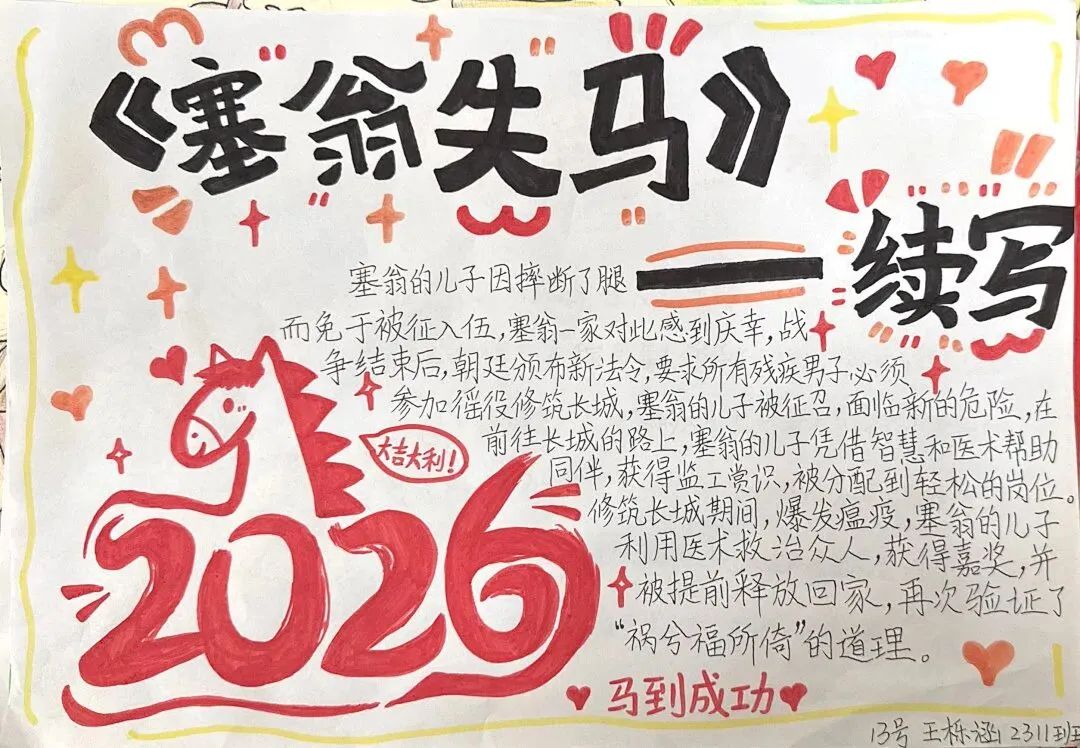 《塞翁失马》
——续写
塞翁的儿子因摔断了腿
而免于被征入伍,塞翁一家对此感到庆幸,战
争结束后,朝廷颁布新法令,要求所有残疾男子必须
参加徭役修筑长城,塞翁的儿子被征召,面临新的危险,在
前往长城的路上,塞翁的儿子凭借智慧和医术帮助
同伴,获得监工赏识,被分配到轻松的岗位。
修筑长城期间,爆发瘟疫,塞翁的儿子
利用医术救治众人,获得嘉奖,并
被提前释放回家,再次验证了
“祸兮福所倚”的道理。
大吉大利!
2026
马到成功
13号 王栎涵 2311班